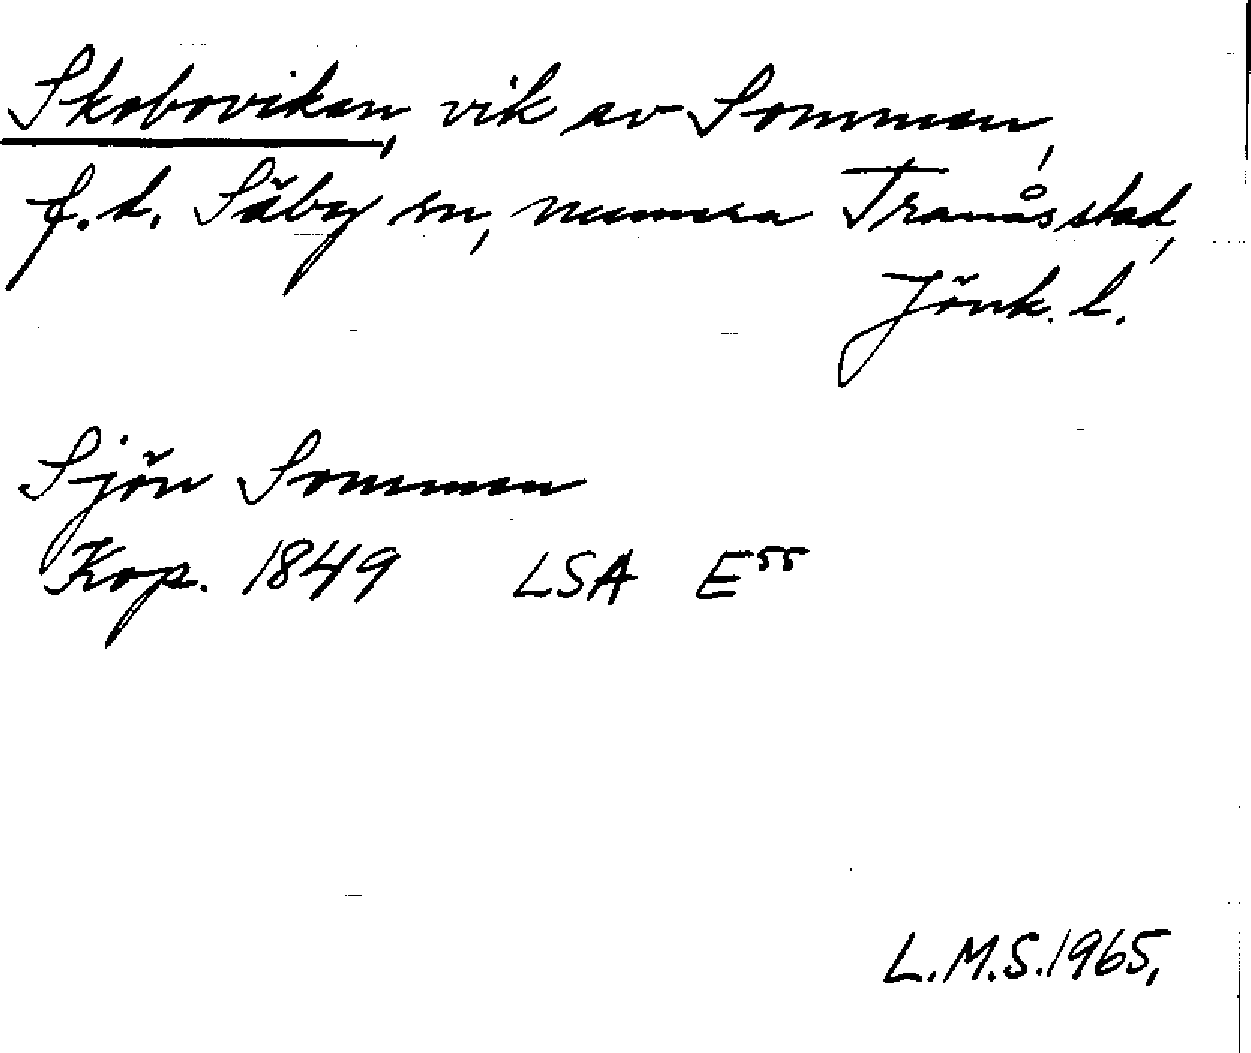 Skobovikan, vik av Sommen,
f.d. Säby sn, numera Tranås stad,
Jönk. l.
Sjön Sommen
Kop. 1849 LSA E55
L.M.S. 1965.